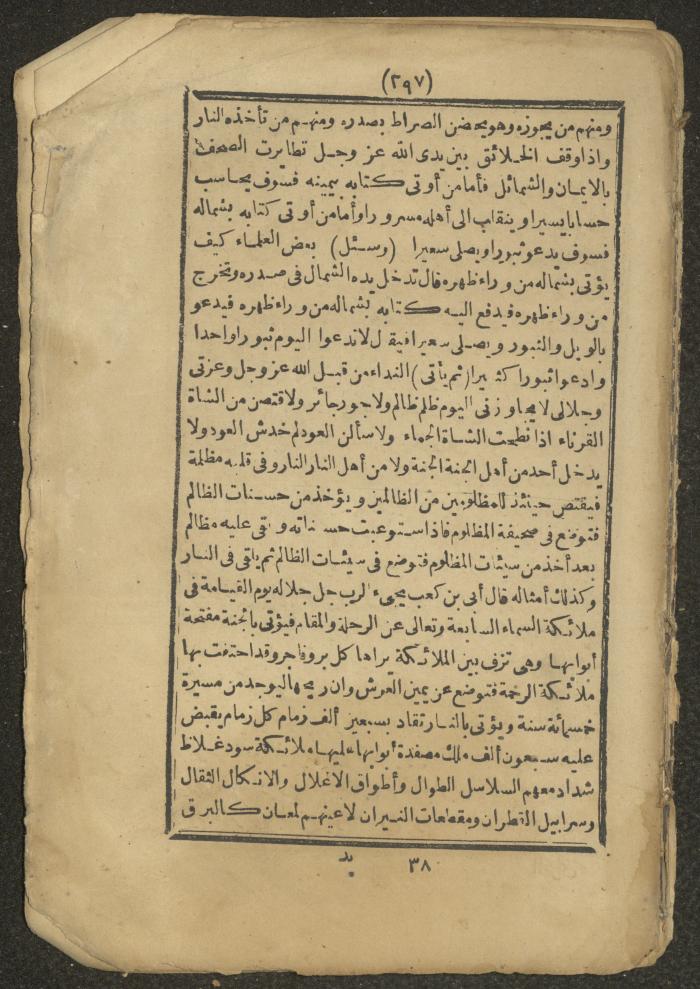 (٢٩٧)
ومنهم من يجوزه وهو يحضن الصراط بصدره ومنهم من تأخذه النار
واذا وقف الخلائق بين يدى الله عز وجل تطايرت الصحف
بالايمان والشمائل فأما من أوتى كتابه بيمينه فسوف يحاسب
حسابا يسيرا وينقلب الى أهله مسرورا وأما من أوتى كتابه بشماله
فسوف يدعو ثبورا ويصلى سعيرا (وسئل) بعض العلماء كيف
يؤتى بشماله من وراء ظهره قال تدخل يده الشمال فى صدره وتخرج
من وراء ظهره فيدفع اليه كتابه بشماله من وراء ظهره فيدعو
بالويل والثبور ويصلى سعيرا فيقال لا تدعوا اليوم ثبورا واحدا
وادعوا ثبورا كثيرا (ثم يأتى) النداء من قبل الله عز وجل وعزتى
وجلالى لا يجاوزنى اليوم ظلم ظالم ولا جور جائر ولاقتصن من الشاة
القرناء اذا نطحت الشاة الجماء ولاسألن العود لم خدش العود ولا
يدخل أحد من أهل الجنة الجنة ولا من أهل النار النار وفى قلبه مظلمة
فيقتص حينئذ للمظلومين من الظالمين ويؤخذ من حسنات الظالم
فتوضع فى صحيفة المظلوم فاذا استوعبت حسناته وبقى عليه مظالم
بعد أخذ من سيئات المظلوم فتوضع فى سيئات الظالم ثم يلقى فى النار
وكذلك أمثاله قال أبى بن كعب يجىء الرب جل جلاله يوم القيامة فى
ملائكة السماء السابعة وتعالى عن الرحلة والمقام فيؤتى بالجنة مفتحة
أبوابها وهى تزف بين الملائكة يراها كل بر وفاجر وقد احتفت بها
ملائكة الرحمة فتوضع عن يمين العرش وان ريحها ليوجد من مسيرة
خمسمائة سنة ويؤتى بالنار تقاد بسبعين ألف زمام كل زمام يقبض
عليه سبعون ألف ملك مصفدة أبوابها عليها ملائكة سود غلاظ
شداد معهم السلاسل الطوال وأطواق الاغلال والانكال الثقال
وسرابيل القطران ومقطعات النيران لاعينهم لمعان كالبرق
٣٨
يد